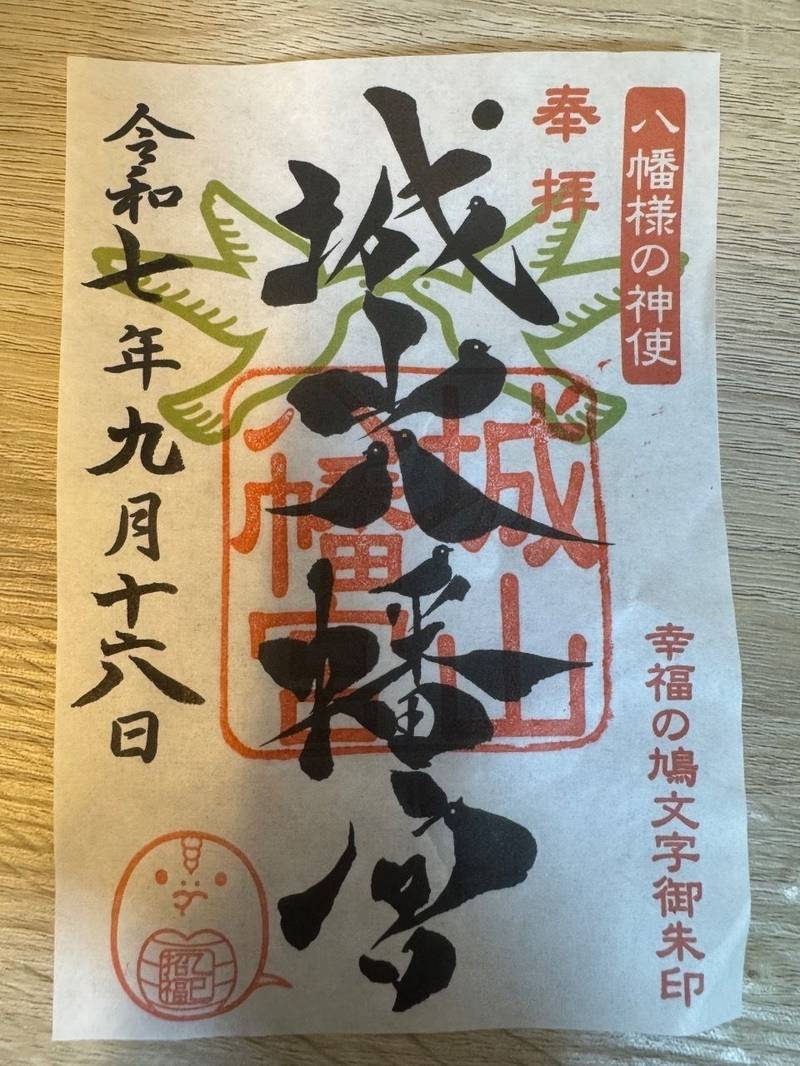 八幡様の神使
幸福の鳩文字御朱印
奉拝
城山八幡宮
城山
八幡宮
令和七年九月十六日
乙巳
招福